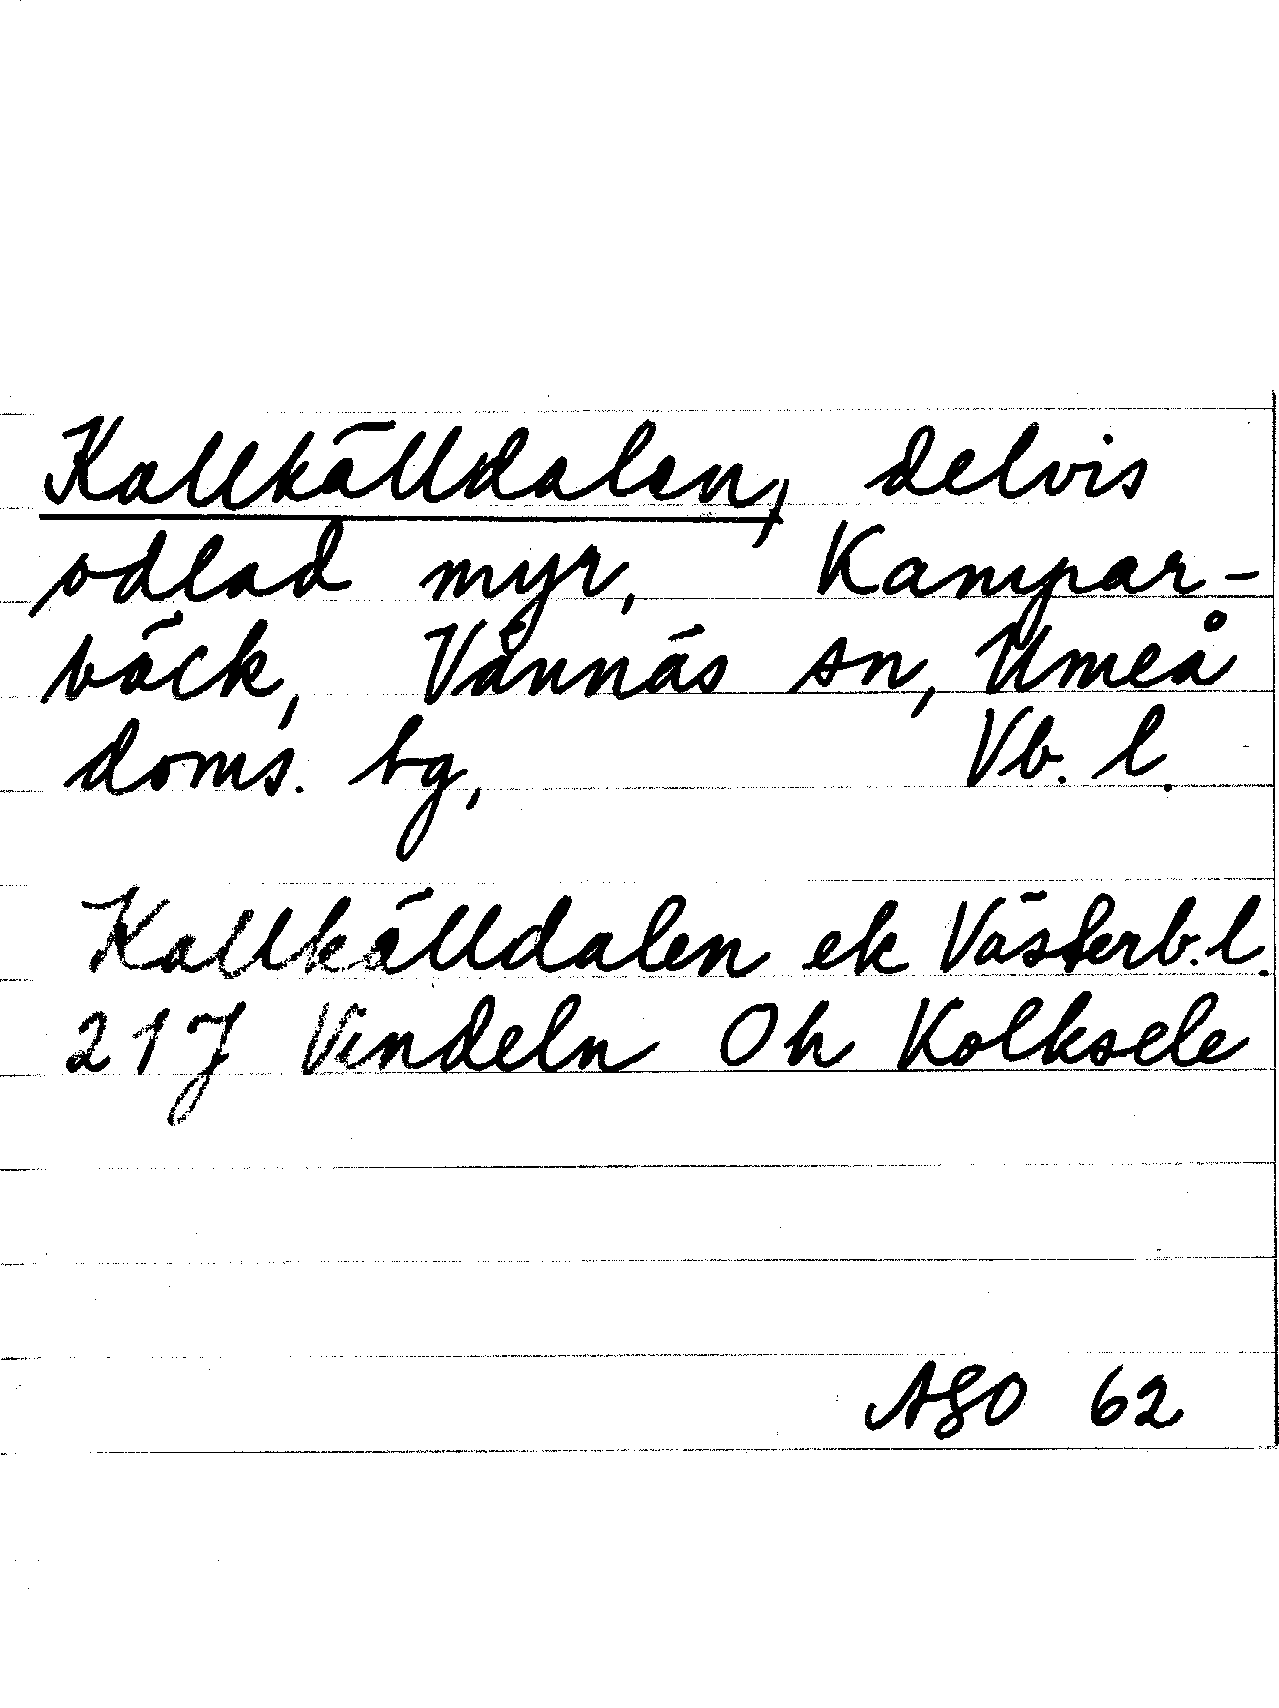 Kallkälldalen, delvis
odlad myr, Kampar-
bäck, Vännäs sn, Umeå
doms. tg, Vb. l.
Kallkälldalen ek Västerb. l.
21J Vindeln Oh Kolksele
AGO 62